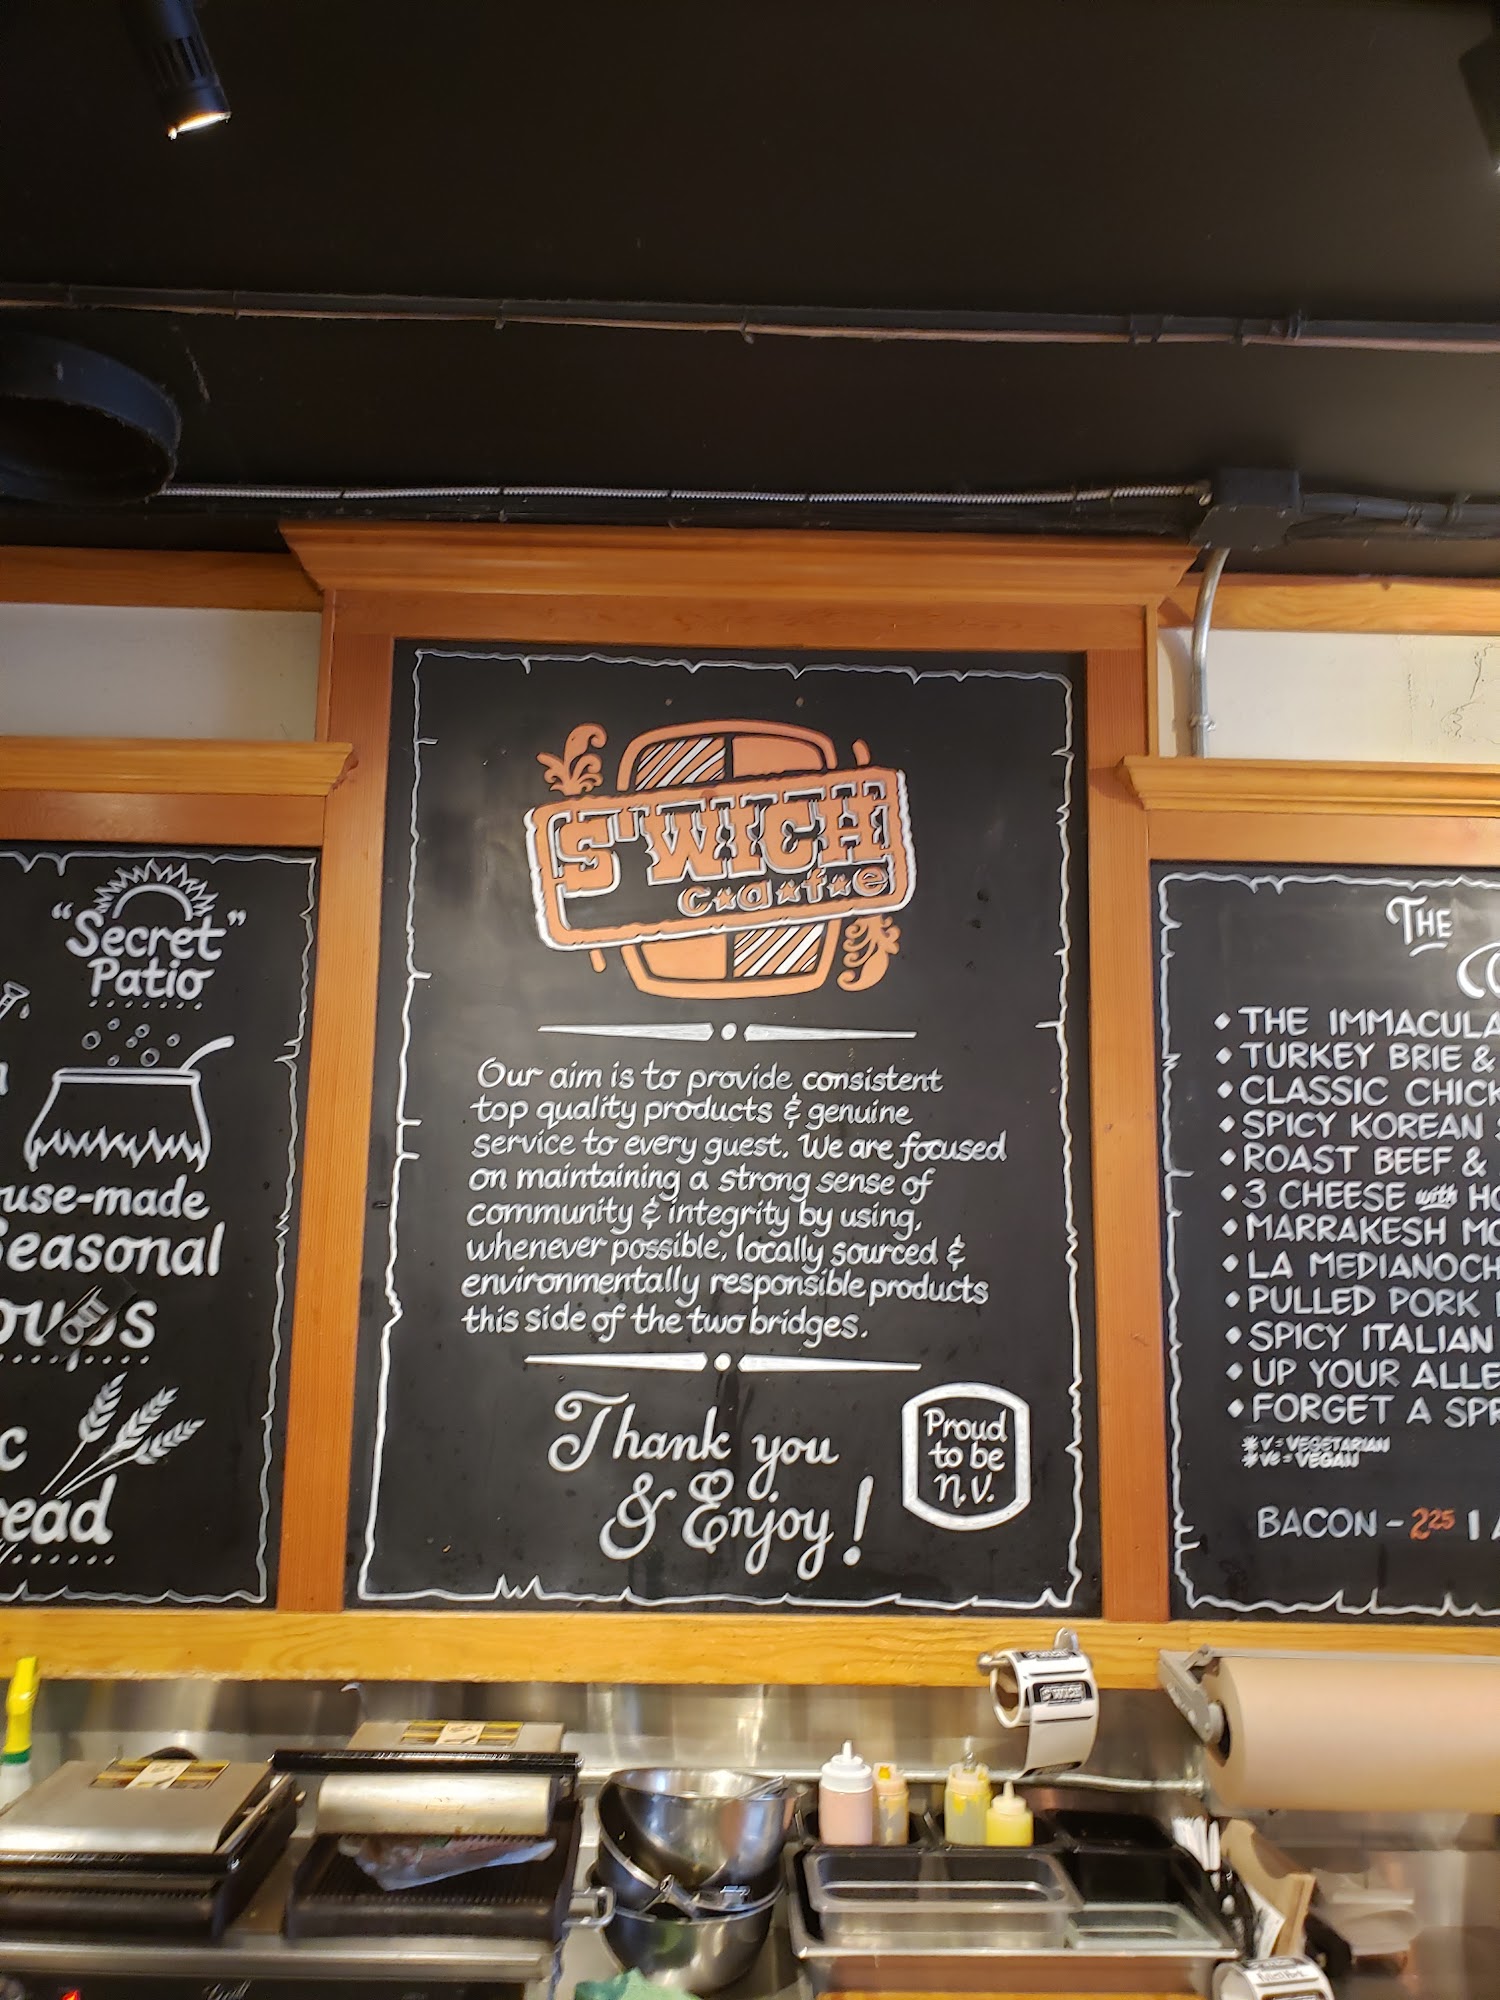 "Secret"
Patio
use-made
Seasonal
OUT
ead
S'WICH
cafe
Our aim is to provide consistent
top quality products & genuine
service to every guest. We are focused
on maintaining a strong sense of
community & integrity by using,
whenever possible, locally sourced &
environmentally responsible products
this side of the two bridges.
Thank you
& Enjoy!
Proud
to be
N.V.
THE
• THE IMMACULA
• TURKEY BRIE &
• CLASSIC CHICK
• SPICY KOREAN
• ROAST BEEF &
• 3 CHEESE with HO
• MARRAKESH MO
• LA MEDIANOCH
• PULLED PORK
• SPICY ITALIAN
• UP YOUR ALLE
• FORGET A SPR
* V = VEGETARIAN
* VE = VEGAN
BACON - 2.25 |
S'WICH
Grill